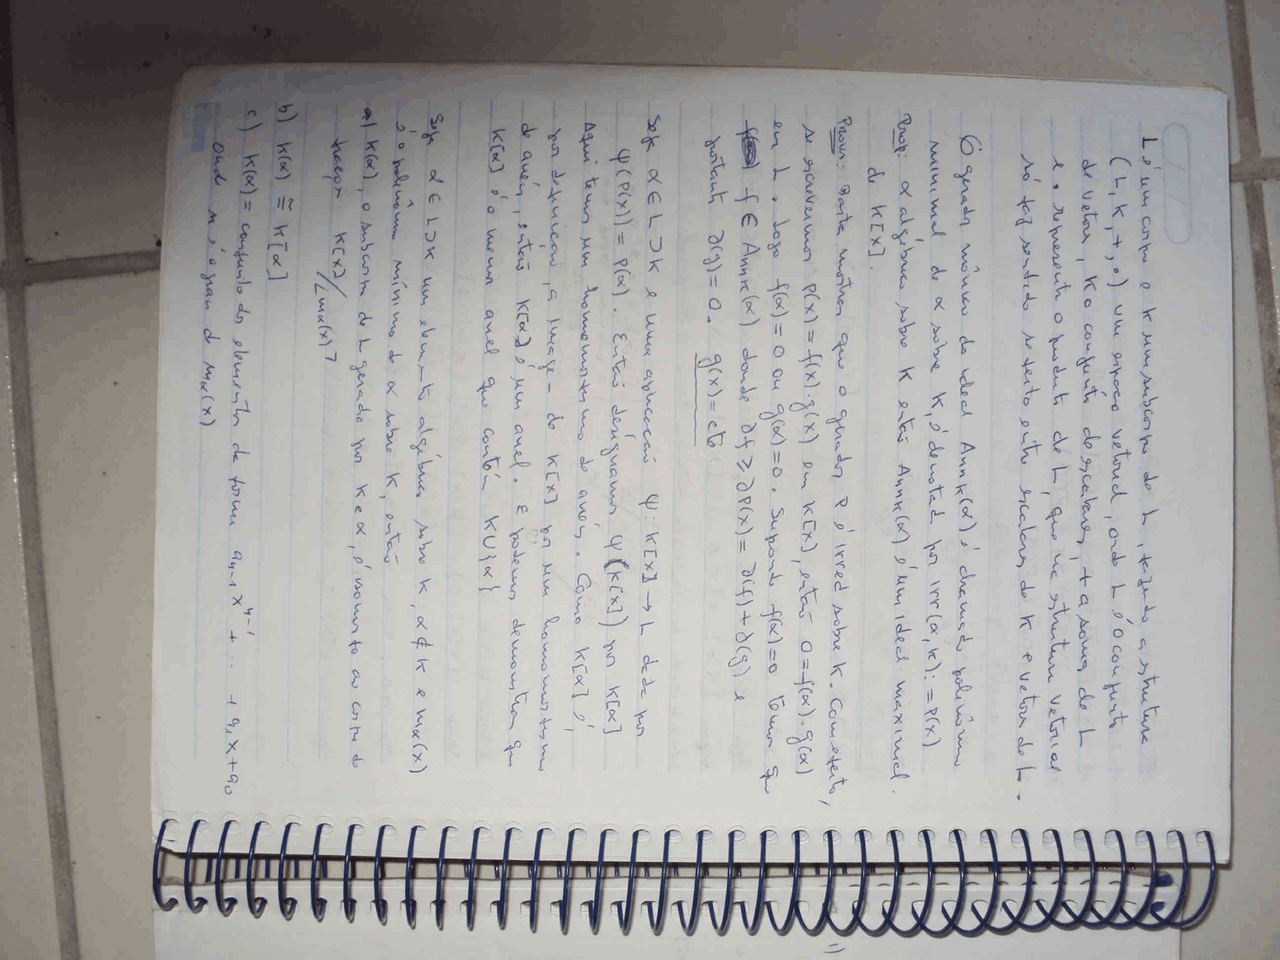 L é um corpo e K um subcorpo de L, tazendo a estrutura
(L, K, +, •) um espaço vetorial, onde L é o conjunto
de vetores, K o conjunto de escalares, + a soma de L
e • representa o produto de L, que na estrutura vetorial
só faz sentido se feito entre escalares de K e vetores de L.
O gerador mônico do ideal AnnK(α) é chamado polinômio
minimal de α sobre K, é denotado por irr(α, K) := P(x)
Prop: α algébrico sobre K então AnnK(α) é um ideal maximal
de K[x].
Prova: Basta mostrar que o gerador P é irred sobre K. Com efeito,
se escrevermos P(x) = f(x).g(x) em K[x], então 0 = f(α).g(α)
em L. Logo f(α)=0 ou g(α)=0. Supondo f(α)=0 temos que
f ∈ AnnK(α) donde ∂f ≥ ∂P(x) = ∂(f) + ∂(g) e
portanto ∂(g)=0. g(x) = cte.
Seja α ∈ L ⊃ K e uma aplicação Ψ: K[x] → L dada por
Ψ(P(x)) = P(α). Então denguamos Ψ(K[x]) por K[α]
Aqui temos um homomorfismo de anéis. Como K[α] é
por definição, a imagem do K[x] por um homomorfismo
de anéis, então K[α] é um anel. E podemos demonstrar que
K[α] é o menor anel que contém K∪{α}
Seja α ∈ L ⊃ K um elemento algébrico sobre K, α ∉ K e mα(x)
o polinômio mínimo de α sobre K, então
a) K(α), o subcorpo de L gerado por K e α, é isomorfo ao corpo de
fraçoes K[x]/<mα(x)>
b) K(α) ≅ K[α]
c) K(α) = conjunto dos elementos da forma aₙ₋₁ x^{n-1} + ... + a₁x + a₀
onde n é o grau de mα(x)